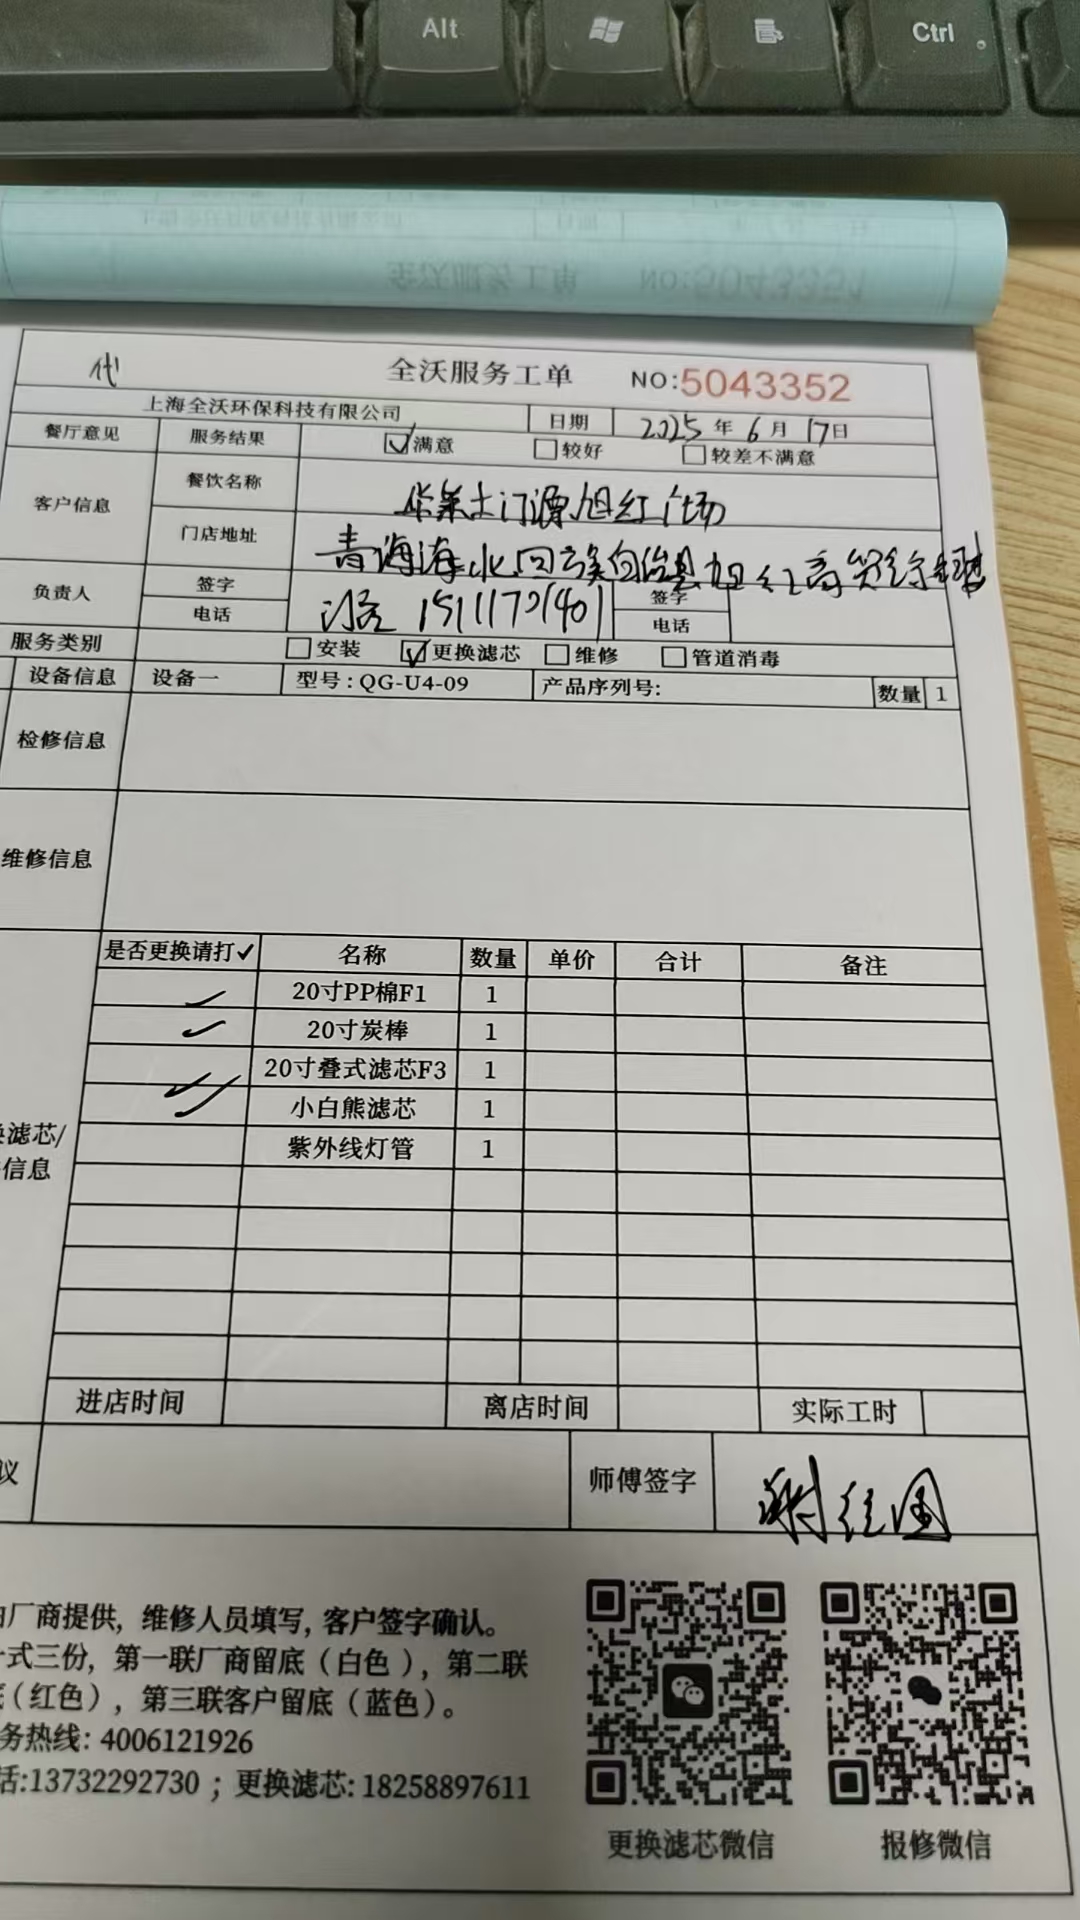 Alt
Ctrl
代
全沃服务工单 NO:5043352
上海全沃环保科技有限公司 日期 2025年6月17日
餐厅意见 服务结果 满意 较好 较差不满意
客户信息 餐饮名称 华莱士门源旭红广场
门店地址 青海海北回族自治县旭红商贸
负责人 签字 签字
电话 电话
服务类别 安装 更换滤芯 维修 管道消毒
设备信息 设备一 型号:QG-U4-09 产品序列号: 数量 1
检修信息
维修信息
是否更换请打✓ 名称 数量 单价 合计 备注
✓ 20寸PP棉F1 1
✓ 20寸炭棒 1
✓ 20寸叠式滤芯F3 1
✓ 小白熊滤芯 1
紫外线灯管 1
滤芯/
信息
进店时间 离店时间 实际工时
议 师傅签字
厂商提供, 维修人员填写, 客户签字确认。
式三份, 第一联厂商留底(白色), 第二联
(红色), 第三联客户留底(蓝色)。
务热线: 4006121926
话:13732292730 ; 更换滤芯: 18258897611
更换滤芯微信 报修微信